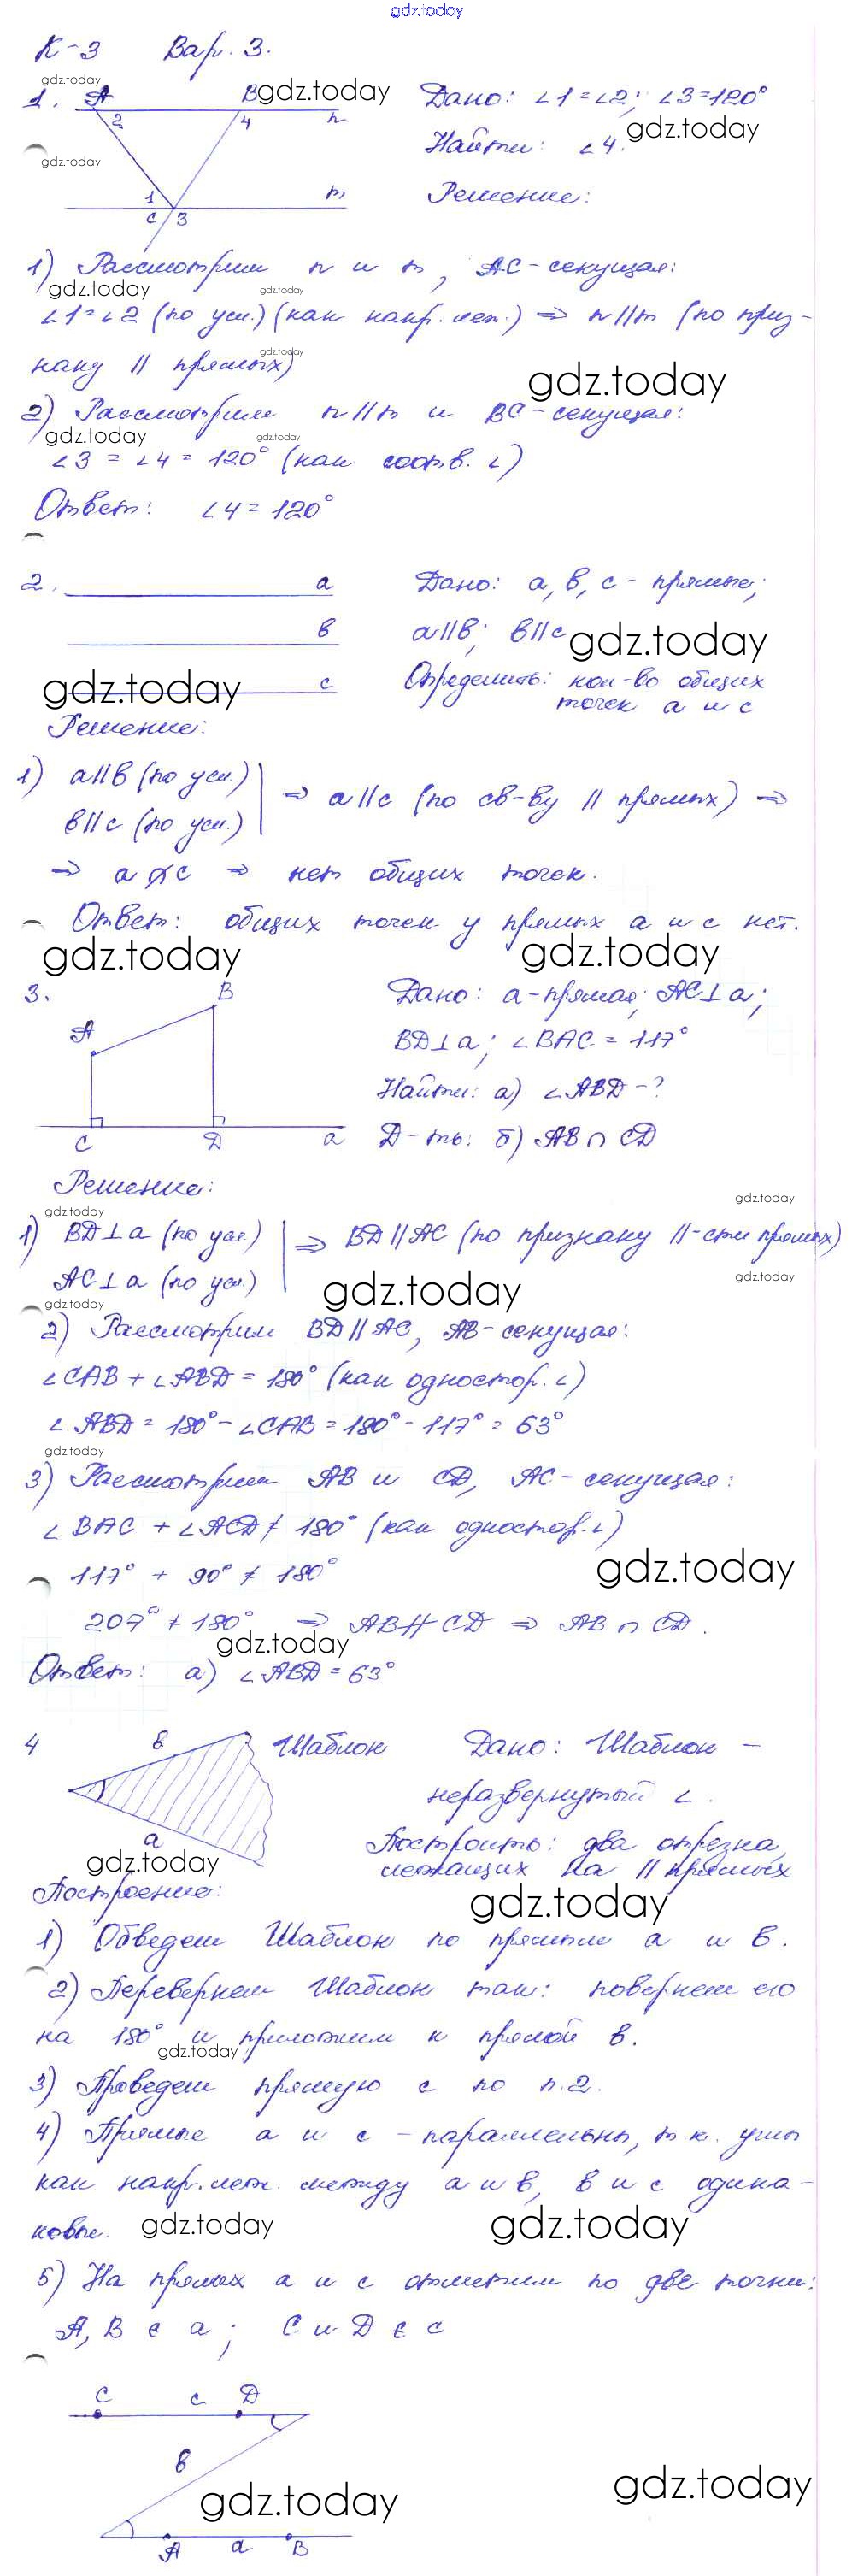 gdz.today
К-3 Вар. 3.
gdz.today
1. A B gdz.today Дано: ∠1=∠2; ∠3=120°
2 4 n gdz.today
Найти: ∠4.
gdz.today
1 m Решение:
C 3
1) Рассмотрим n и m, AC-секущая:
gdz.today gdz.today
∠1=∠2 (по усл.) (как накр. леж.) ⇒ n||m (по приз-
gdz.today
наку || прямых)
gdz.today
2) Рассмотрим n||m и BC-секущая:
gdz.today gdz.today
∠3 = ∠4 = 120° (как соотв. ∠)
Ответ: ∠4 = 120°
2. a Дано: a, b, c - прямые;
b a||b; b||c gdz.today
gdz.today c Определить: кол-во общих
точек a и c
Решение:
1) a||b (по усл.)
b||c (по усл.) ⇒ a||c (по св-ву || прямых) ⇒
⇒ a ∦ c ⇒ нет общих точек.
Ответ: общих точек у прямых a и c нет.
gdz.today gdz.today
3. B Дано: a-прямая; AC⊥a;
A BD⊥a; ∠BAC = 117°
Найти: а) ∠ABD-?
C D a Д-ть: б) AB ∩ CD
Решение:
gdz.today
gdz.today
1) BD⊥a (по усл.) ⇒ BD||AC (по признаку ||-сти прямых)
AC⊥a (по усл.)
gdz.today gdz.today
gdz.today
2) Рассмотрим BD||AC, AB-секущая:
∠CAB + ∠ABD = 180° (как одностор. ∠)
∠ABD = 180° - ∠CAB = 180° - 117° = 63°
gdz.today
3) Рассмотрим AB и CD, AC-секущая:
∠BAC + ∠ACD ≠ 180° (как одностор. ∠)
117° + 90° ≠ 180° gdz.today
207° ≠ 180° ⇒ AB∦CD ⇒ AB ∩ CD.
gdz.today
Ответ: а) ∠ABD = 63°
4. b Шаблон Дано: Шаблон -
неразвернутый ∠.
a Построить: два отрезка,
gdz.today лежащих на || прямых
Построение: gdz.today
1) Обведем Шаблон по прямые a и b.
2) Перевернем Шаблон так: повернем его
на 180° и приложим к прямой b.
gdz.today
3) Проведем прямую c по п.2.
4) Прямые a и c - параллельны, т.к. углы
как накр. леж. между a и b, b и c одина-
ковые. gdz.today gdz.today
5) На прямых a и c отметим по две точки:
A, B ∈ a; C и D ∈ c
C c D
b
gdz.today gdz.today
A a B